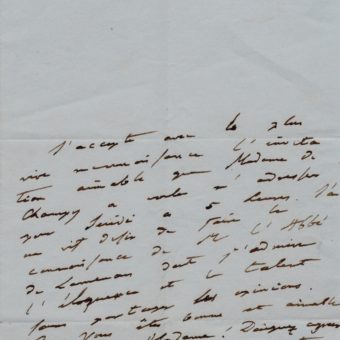 J'accepte avec le plus
vive reconnoissance l'invita
tion aimable que Madame de
a voulu m'adresser
pour Jeudi a 5 heures. J'ai
un vif desir de faire la
connoissance de Mr l'Abbé
de dont j'admire
l'éloquence et le talent
sans partager les opinions.
Vous êtes bonne et aimable
Madame! Daignez agréer